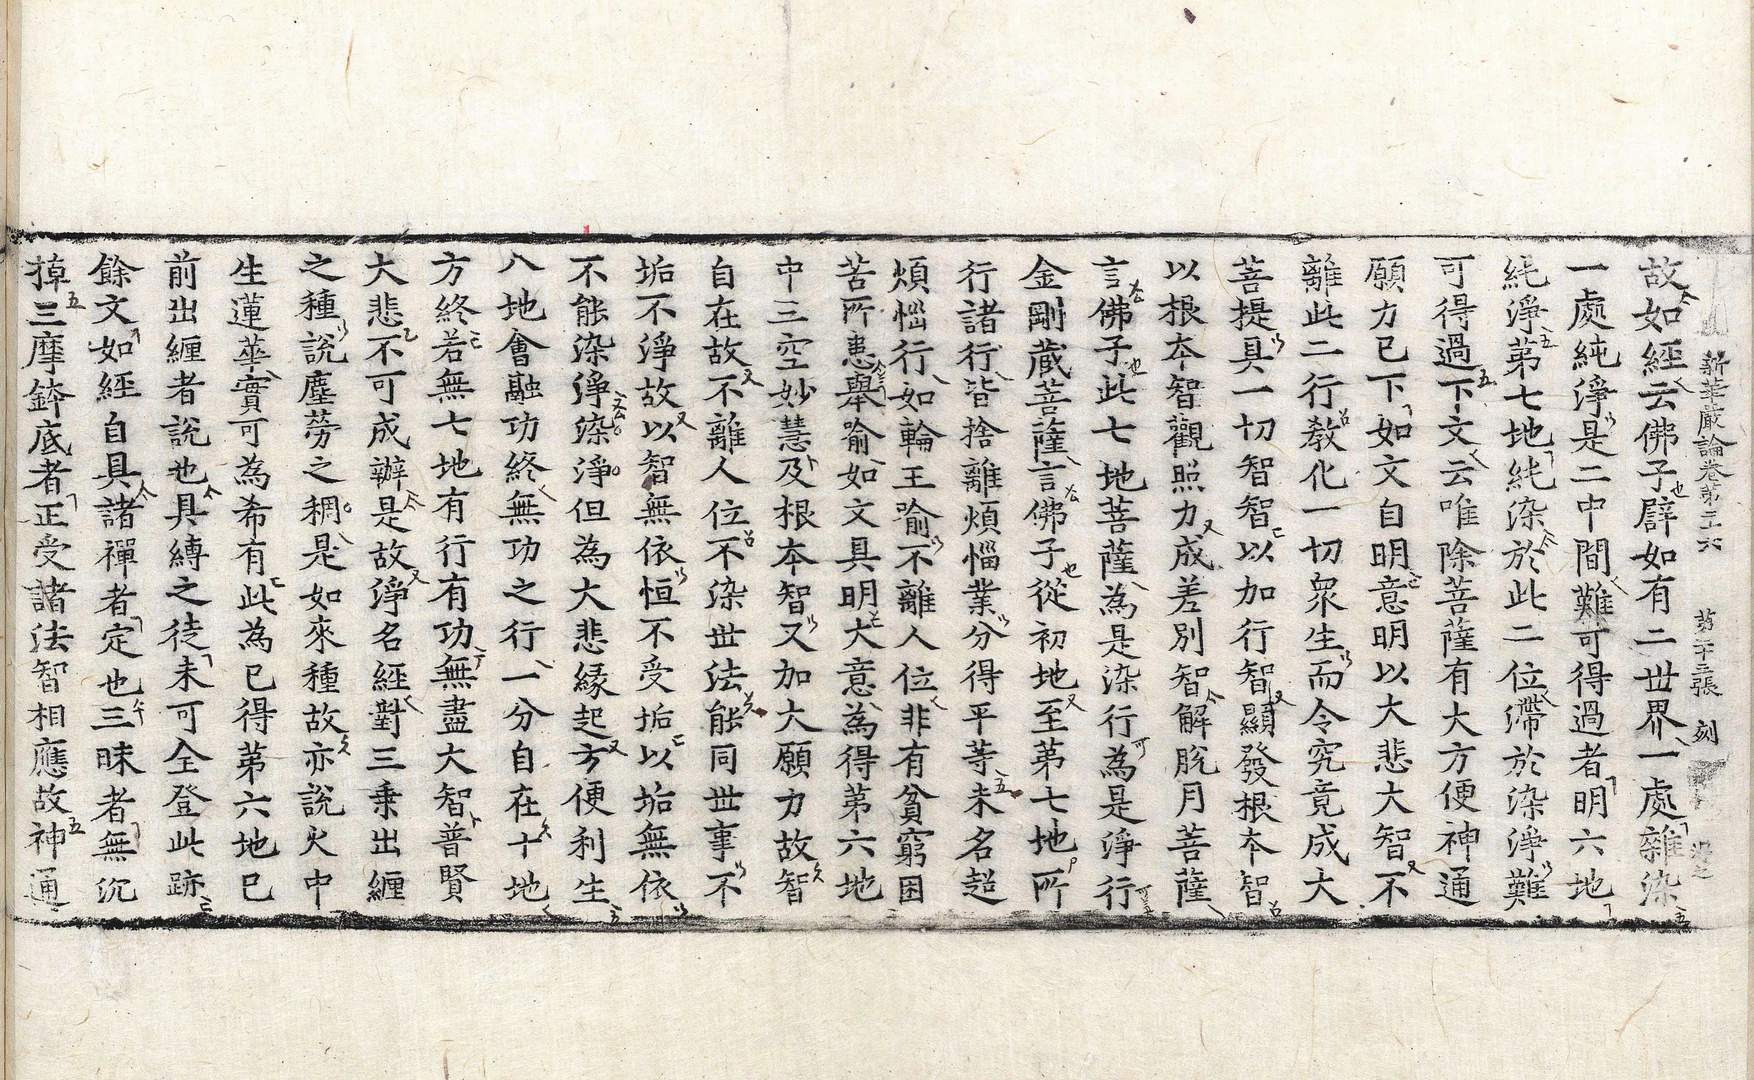 新華嚴論卷第二六 第十三張 刻
故如經云佛子譬如有二世界一處雜染
一處純淨是二中間難可得過者明六地
純淨第七地純染於此二位滯於染淨難
可得過下文云唯除菩薩有大方便神通
願力已下如文自明意明以大悲大智不
離此二行教化一切衆生而令究竟成大
菩提具一切智智以加行智顯發根本智
以根本智觀照力成差別智解脫月菩薩
言佛子此七地菩薩為是染行為是淨行
金剛藏菩薩言佛子從初地至第七地所
行諸行皆捨離煩惱業分得平等未名超
煩惱行如輪王喻不離人位非有貧窮困
苦所患舉喻如文具明大意為得第六地
中三空妙慧及根本智又加大願力故智
自在故不離人位不染世法能同世事不
垢不淨故以智無依恒不受垢以垢無依
不能染淨染淨但為大悲緣起方便利生
八地會融功終無功之行一分自在十地
方終若無七地有行有功無盡大智普賢
大悲不可成辦是故淨名經對三乗出纏
之種說塵勞之稠是如來種故亦說火中
生蓮華實可為希有此為已得第六地已
前出纏者說也具縛之徒未可全登此跡
餘文如經自具諸禪者定也三昧者無沉
掉三摩鉢底者正受諸法智相應故神通